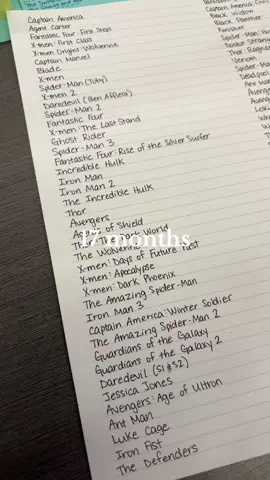 Captain America
Agent Carter
Fantastic Four: First Steps
X-men: First Class
X-men Origins: Wolverine
Captain Marvel
Blade
X-men
Spider-Man (Tobey)
X-men 2
Daredevil (Ben Affleck)
Spider-Man 2
Fantastic Four
X-men: The Last Stand
Ghost Rider
Spider-Man 3
Fantastic Four: Rise of the Silver Surfer
Incredible Hulk
Iron Man
Iron Man 2
The Incredible Hulk
Thor
Avengers
of Shield
17 months
World
The Wolverine
X-men: Days of Future Past
X-men: Apocalypse
X-men: Dark Phoenix
The Amazing Spider-Man
Iron Man 3
Captain America: Winter Soldier
The Amazing Spider-Man 2
Guardians of the Galaxy
Guardians of the Galaxy 2
Daredevil (S1 & S2)
Jessica Jones
Avengers: Age of Ultron
Ant Man
Luke Cage
Iron Fist
The Defenders
Captain America: Civil
Black Widow
Black Panther
Punisher
Doctor
Thor: Ragnar
Venom